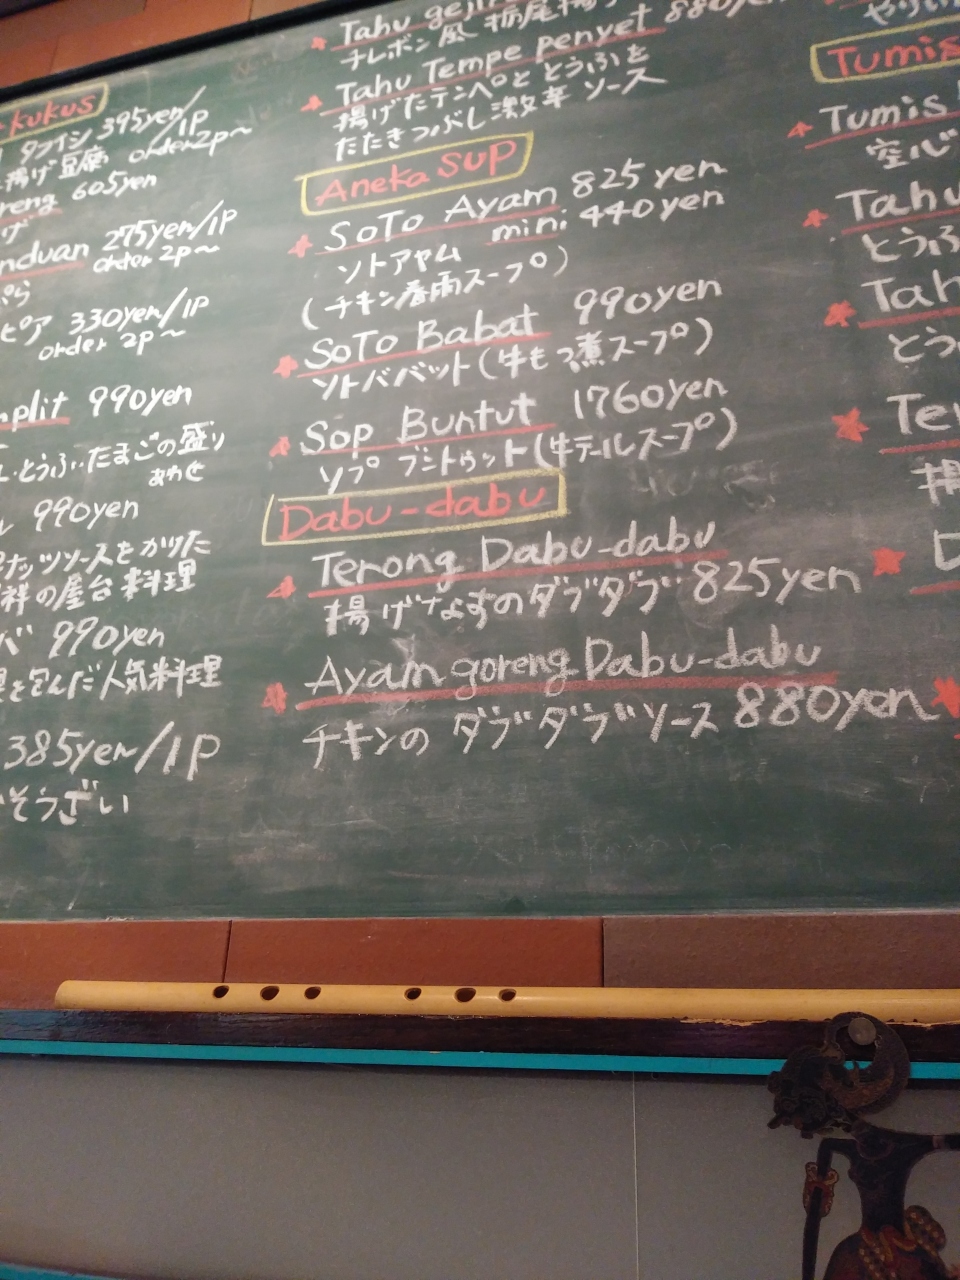 kukus
395yen/1P
揚げ豆腐 order 2p~
reng 605yen
げ
nduan 275yen/1P
order 2p~
ぷら
ピア 330yen/1P
order 2p~
mplit 990yen
とうふ・たまごの盛り
あわせ
990yen
ナッツソースをかけた
祥の屋台料理
バ 990yen
を包んだ人気料理
385yen/1P
そうざい
Tahu gejr
チレボン風 栃尾揚げ
Tahu Tempe penyet 880yen
揚げたテンペととうふを
たたきつぶし激辛ソース
Aneka sup
SoTo Ayam 825yen
mini 440yen
ソトアヤム
(チキン春雨スープ)
SoTo Babat 990yen
ソトババット(牛もつ煮スープ)
Sop Buntut 1760yen
ソプ ブントゥット(牛テールスープ)
Dabu-dabu
Terong Dabu-dabu
揚げなすのダブダブ 825yen
Ayam goreng Dabu-dabu
チキンの ダブダブソース 880yen
Tumis
Tumis
空心
Tahu
とうふ
Tah
とう
Ter
揚
D